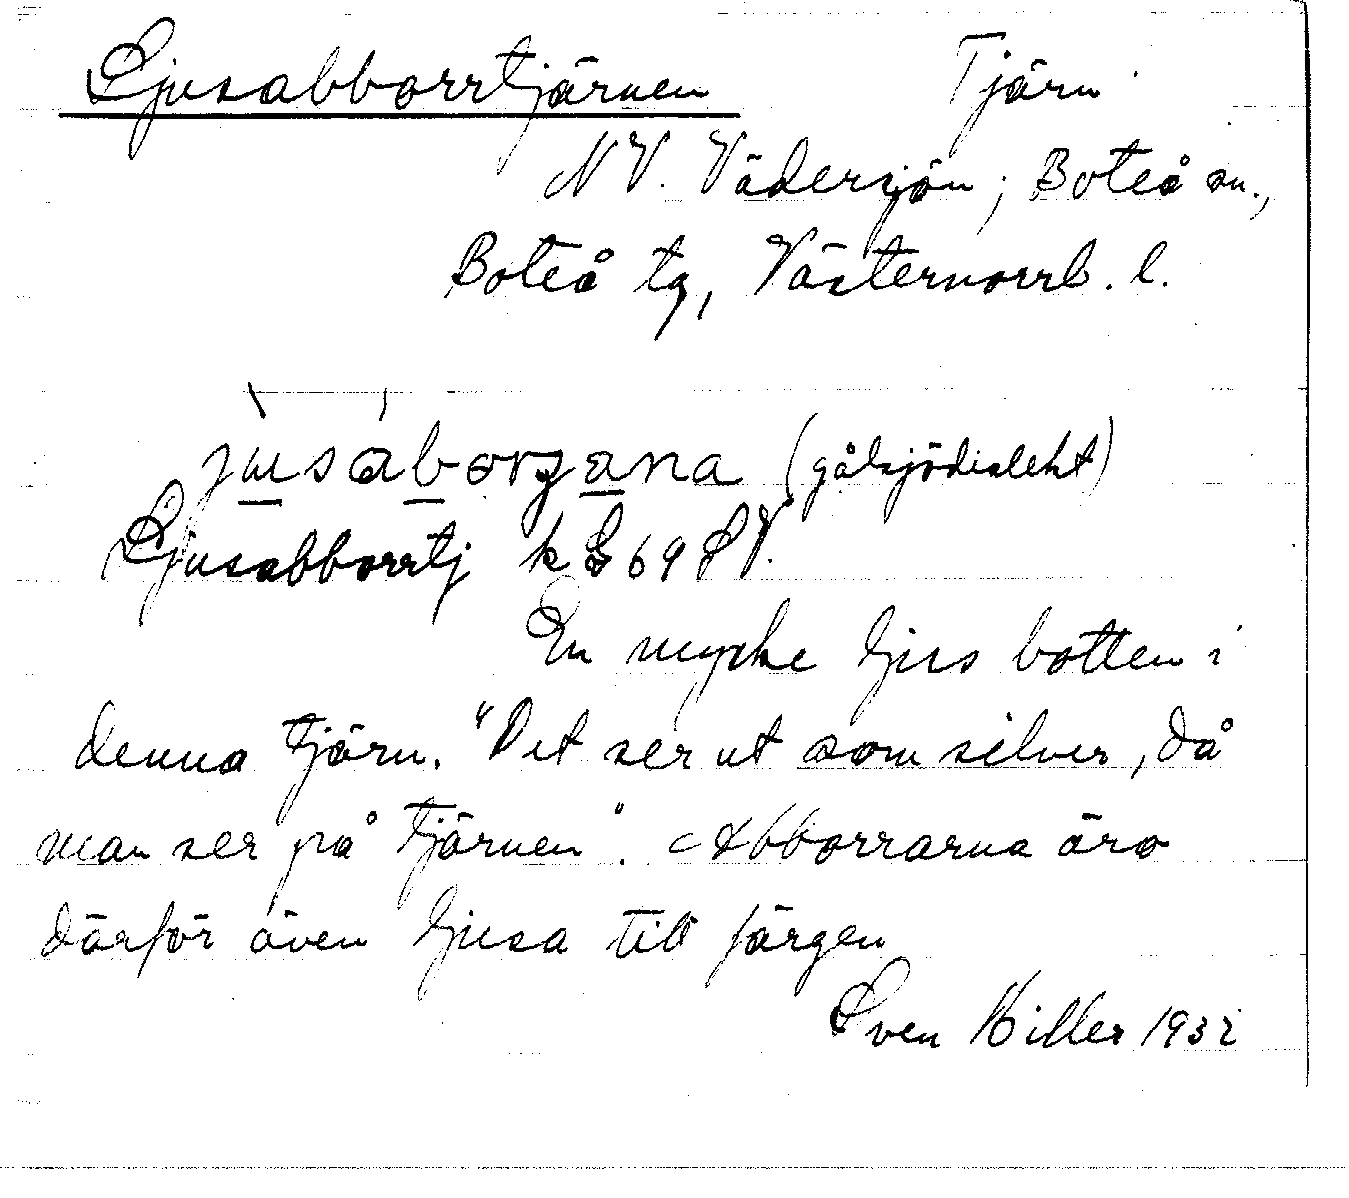 Ljusabborrtjärnen Tjärn
NV. Vädersjön; Boteå sn.,
Boteå tg, Västernorrl. l.
(gålsjödialekt)
Ljusabborrtj k 69 SV.
En mycke ljus botten i
denna tjärn. "Det ser ut som silver, då
man ser på tjärnen". Abborrarna äro
därför även ljusa till färgen
Sven Hiller 1932